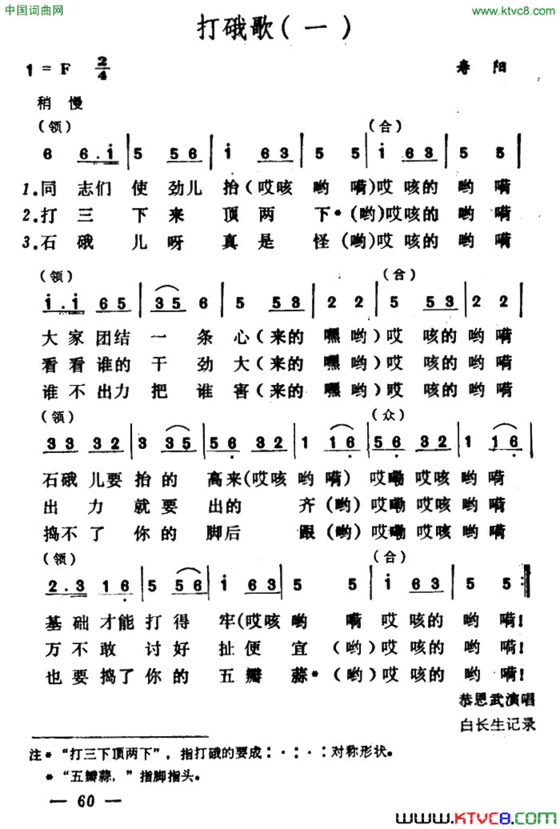 中国词曲网
www.ktvc8.com
打硪歌(一)
1=F 2/4
寿阳
稍慢
(领) (合)
6 6.i | 5 56 | i 63 | 5 5 | i 63 | 5 5 |
1.同志们 使劲儿 抬(哎咳 哟嗬)哎咳的 哟嗬
2.打三 下来 顶两 下*(哟)哎咳的 哟嗬
3.石硪 儿呀 真是 怪(哟)哎咳的 哟嗬
(领) (合)
i.i 65 | 35 6 | 6 5 | i 63 | 2 2 | 5 653 | 2 2 |
大家团结 一 条心(来的 嘿哟)哎 咳的 哟嗬
看看谁的 干 劲大(来的 嘿哟)哎 咳的 哟嗬
谁不出力 把 谁害(来的 嘿哟)哎 咳的 哟嗬
(领) (众)
33 32 | 3 35 | 56 32 | 1 16 | 56 32 | 1 16 |
石硪儿要 抬的 高来(哎咳 哟嗬) 哎嘞哎咳 哟嗬
出力 就要 出的 齐(哟)哎嘞哎咳 哟嗬
捣不了 你的 脚后 跟(哟)哎嘞哎咳 哟嗬
(领) (合)
2.3 16 | 5 56 | i 63 | 5 5 | i 63 | 5 5 :‖
基础才能 打得 牢(哎咳哟 嗬哎咳的 哟嗬!
万不敢 讨好 扯便宜 (哟)哎咳的 哟嗬!
也要捣了 你的 五瓣 蒜*(哟)哎咳的 哟嗬!
恭恩武演唱
白长生记录
注*“打三下顶两下”,指打硪的要成:·:·:对称形状。
*“五瓣蒜,”指脚指头。
— 60 —
www.KTVC8.com